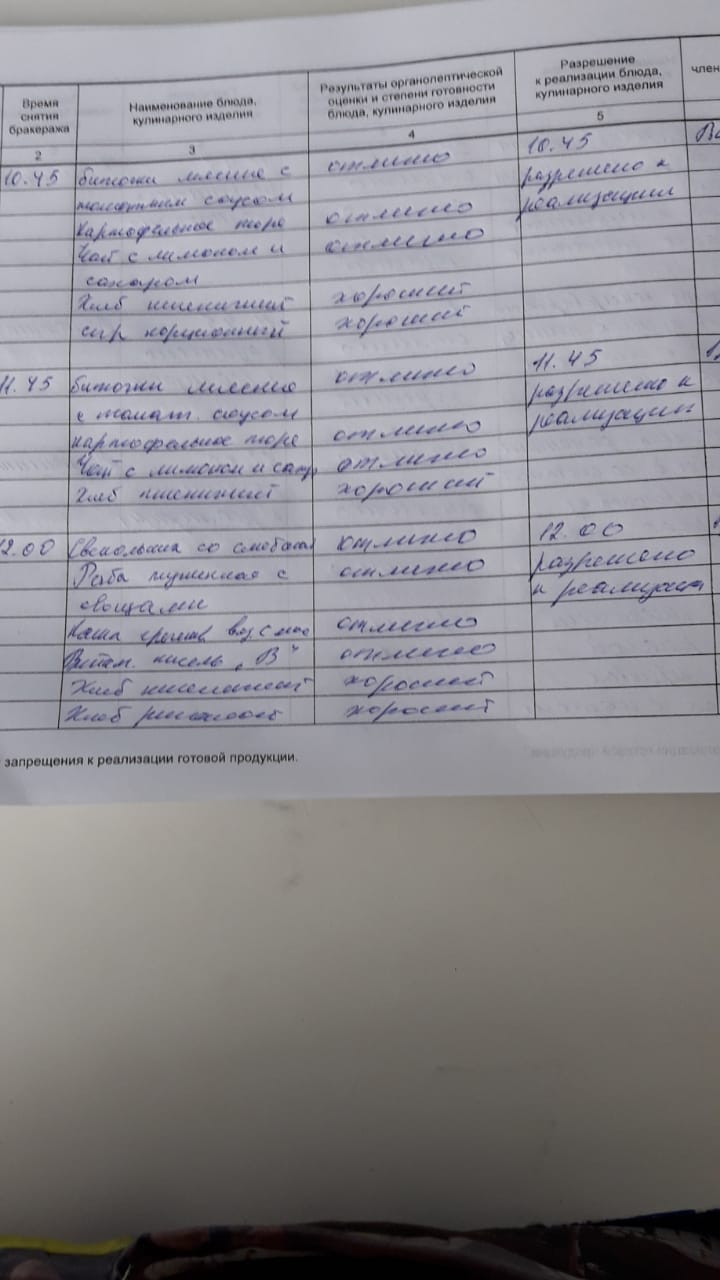 Время
снятия
бракеража
Наименование блюда,
кулинарного изделия
Результаты органолептической
оценки и степени готовности
блюда, кулинарного изделия
Разрешение
к реализации блюда,
кулинарного изделия
член
2
3
4
5
10.45 биточки мясные с отлично 10.45
томатным соусом разрешено к
картофельное пюре отлично реализации
Чай с лимоном и отлично
сахаром
Хлеб пшеничный хороший
сыр порционный хороший
11.45 биточки мясные отлично 11.45
с томат. соусом разрешено к
картофельное пюре отлично реализации
Чай с лимоном и сахар отлично
Хлеб пшеничный хороший
12.00 Свекольник со сметаной отлично 12.00
Рыба тушенная с отлично разрешено
овощами к реализации
Каша гречнев вяз с мас отлично
Витам. кисель „В" отлично
Хлеб пшеничный хороший
Хлеб ржаной хороший
запрещения к реализации готовой продукции.